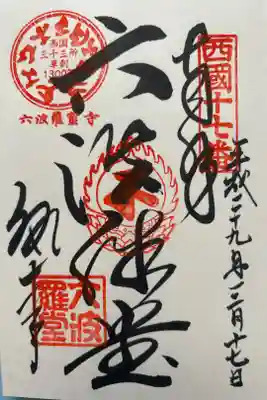 奉拝
西國十七番
平成二十九年 月十七日
六波羅堂
西国
三十三所
草創
1300年
六波羅蜜寺
六波
羅堂